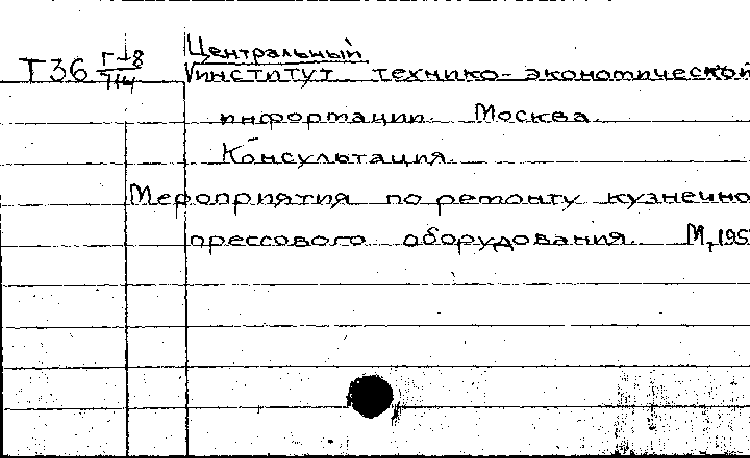 Центральный
Т36 Г-8 институт технико-экономической
714 информации Москва
Консультация
Мероприятия по ремонту кузнечно
прессового оборудования. М, 195